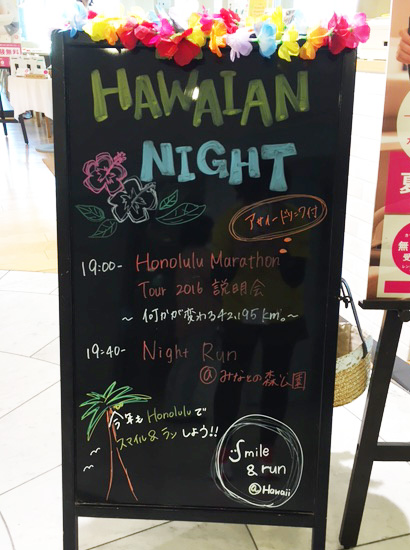 HAWAIAN
NIGHT
アサイードリンク付
19:00- Honolulu Marathon
Tour 2016 説明会
～何かが変わる42.195km。～
19:40- Night Run
@みなとの森公園
今年もHonoluluで
スマイル&ランしよう!!
Smile
& run
@Hawaii
夏
無